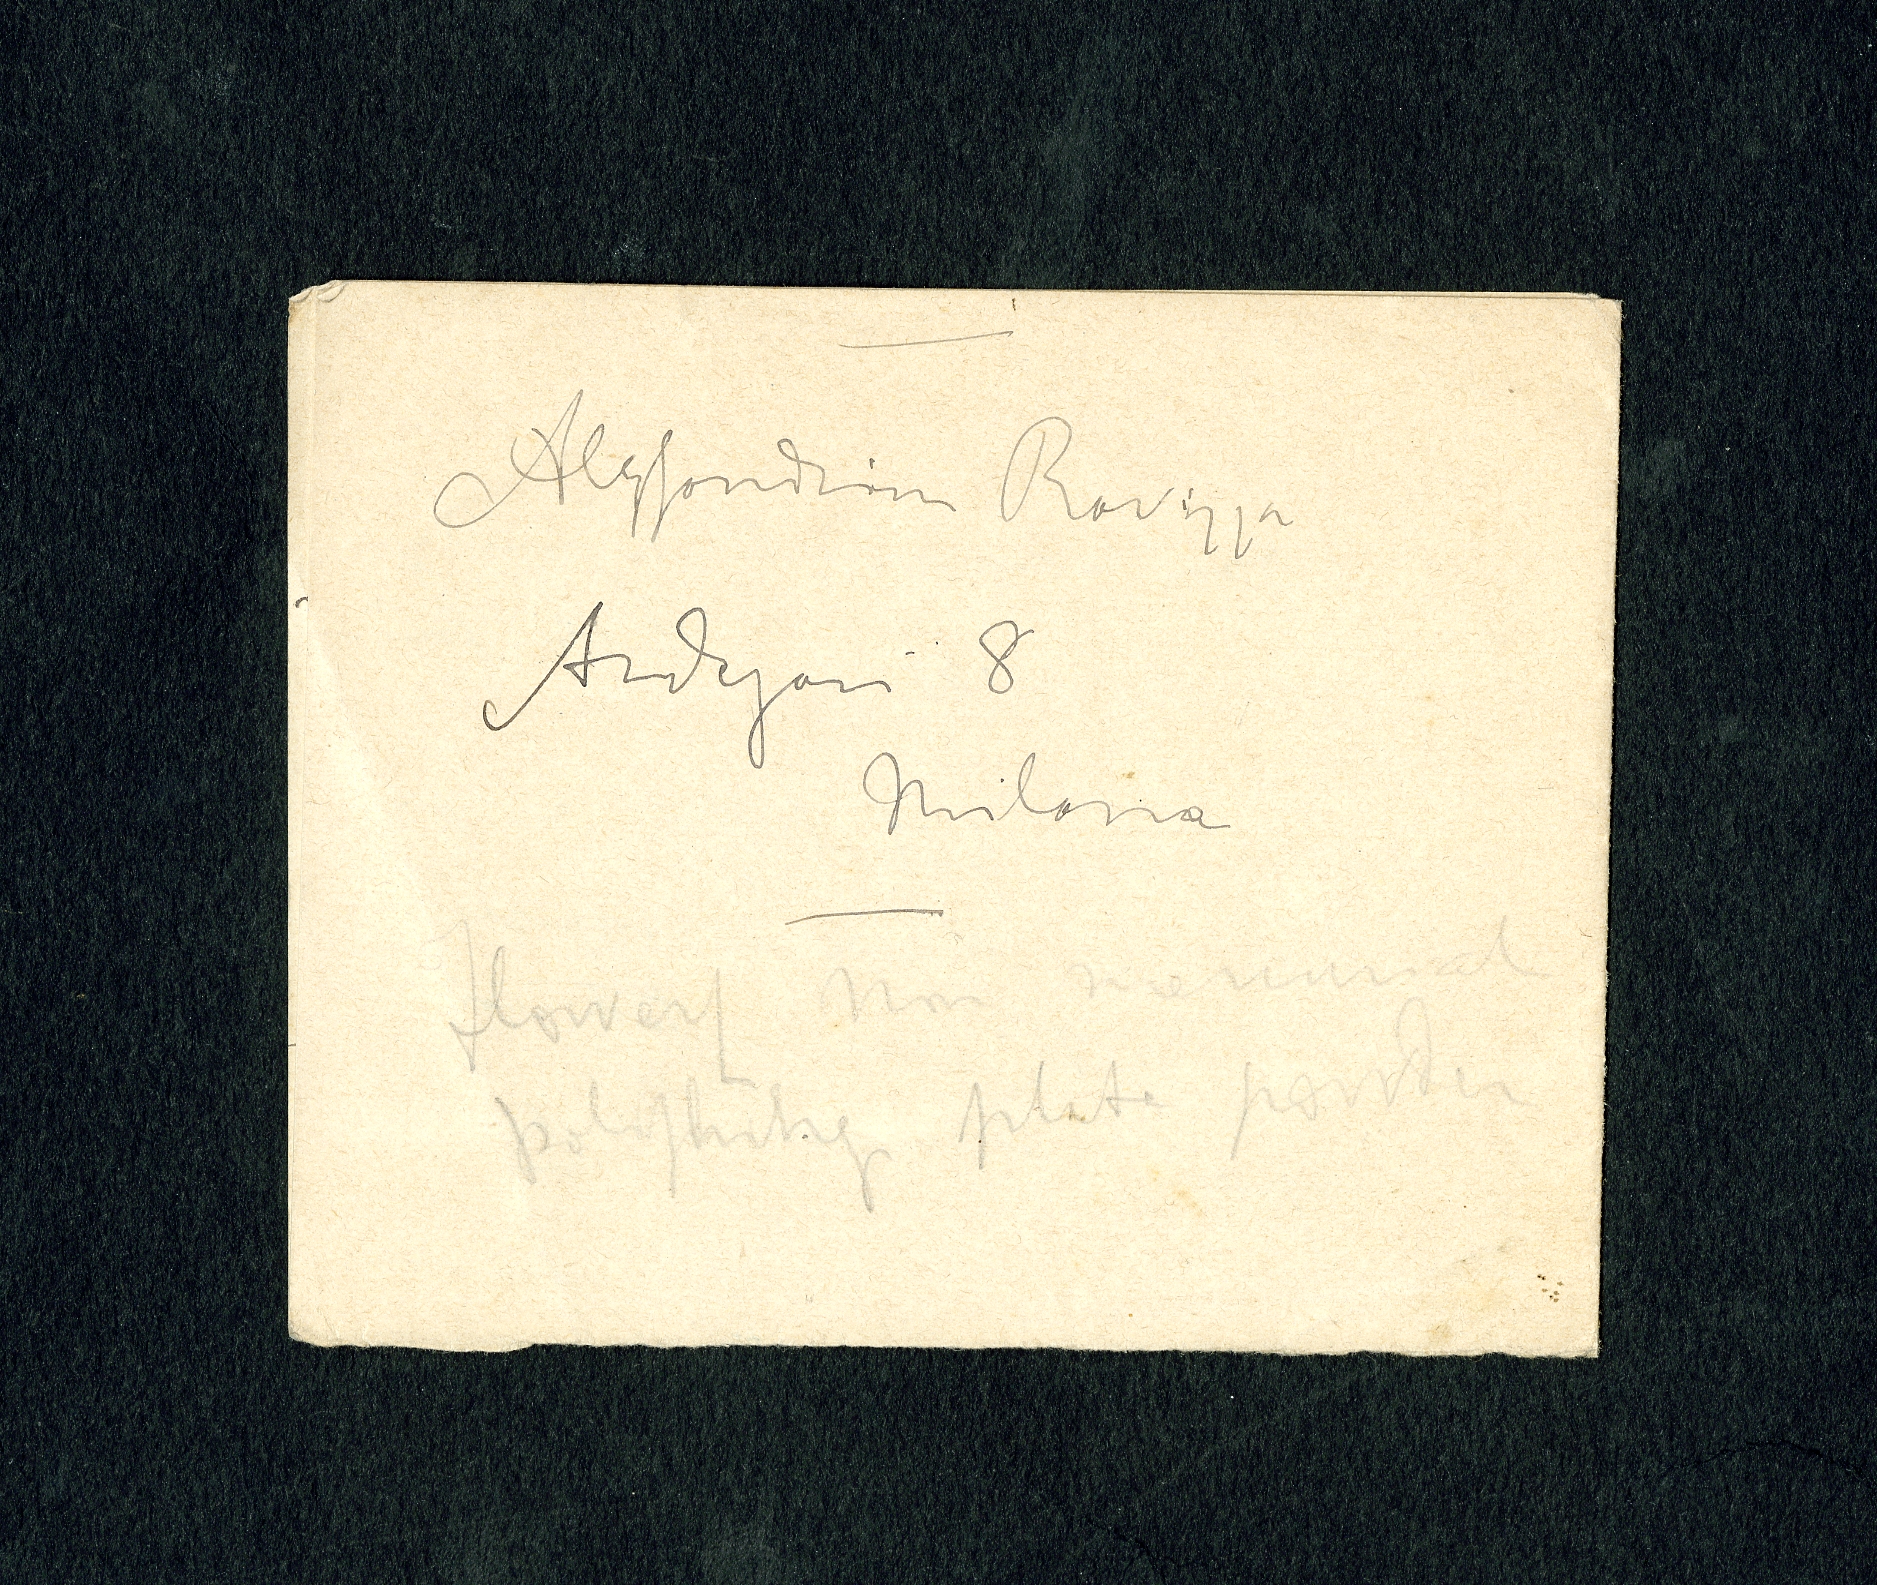 Alessandrina Ravizza
Andegari 8
Milano
Flowers Non mercurial
polishing plate powder